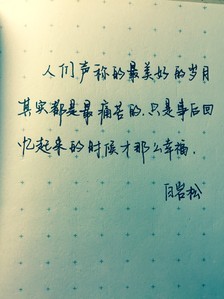 人们声称的最美好的岁月
其实都是最痛苦的.只是事后回
忆起来的时候才那么幸福.
白岩松